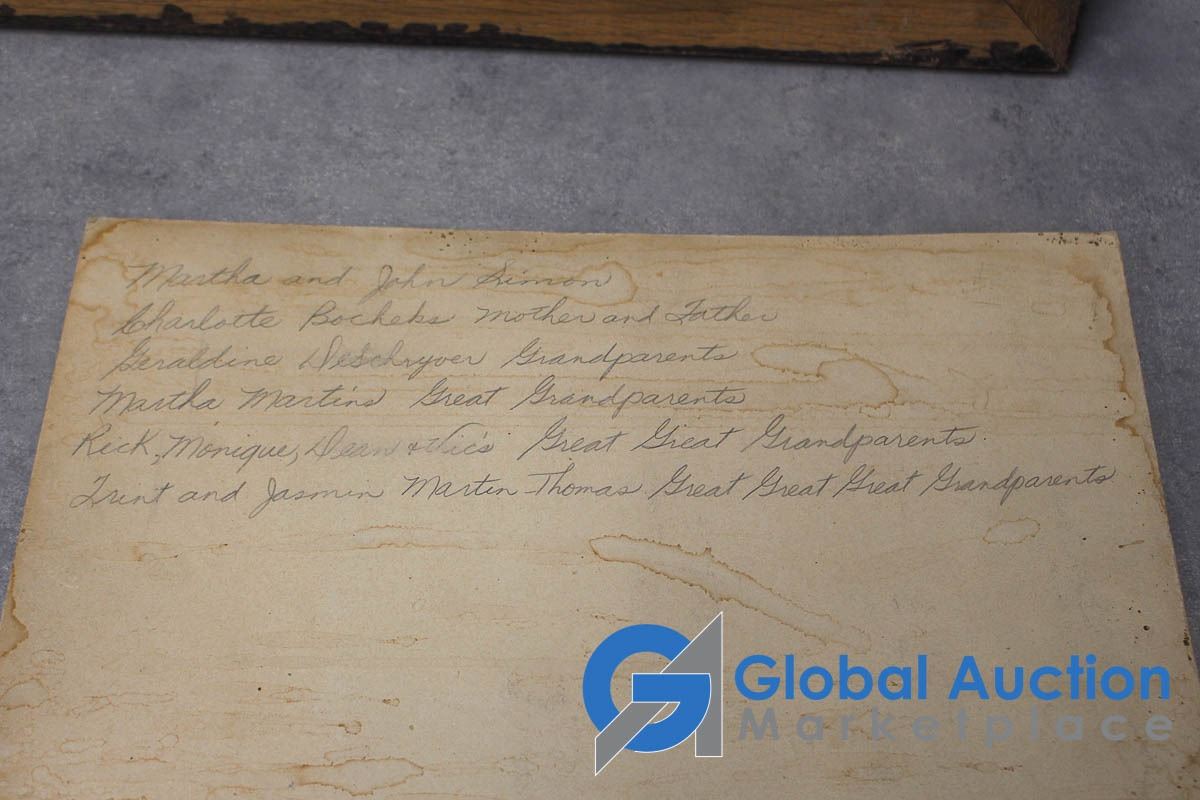 Martha and John Simon
Charlotte Bocheks Mother and Father
Geraldine DeSchryver Grandparents
Martha Martins Great Grandparents
Rick, Monique, Dean & Vic's Great Great Grandparents
Trent and Jasmin Martin Thomas Great Great Great Grandparents
Global Auction
Marketplace